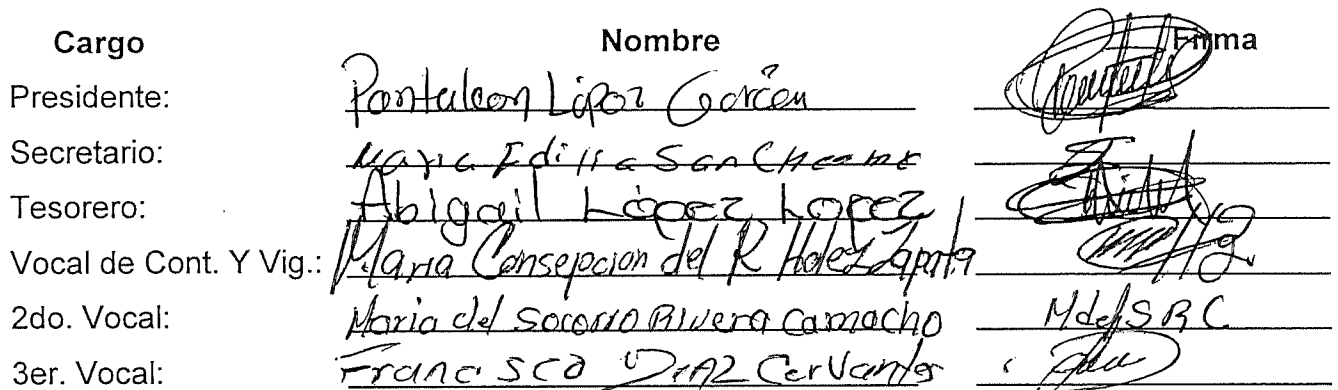 Cargo Nombre Firma
Presidente: Pantaleon López García
Secretario: Maria Edilia San
Tesorero: Abigail López Lopez
Vocal de Cont. Y Vig.: Maria Consepcion del R Hdez Zapata
2do. Vocal: Maria del Socorro Rivera Camacho M del S R C
3er. Vocal: Francisco DiAZ Cervantes